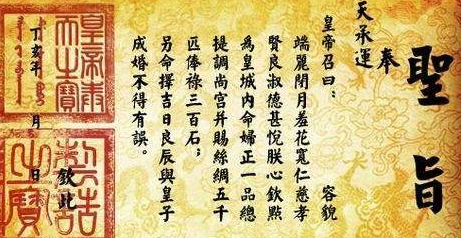 聖旨
奉
天承運
皇帝召曰：容貌
端麗閉月羞花寬仁慈孝
賢良淑德甚悅朕心欽點
為皇城內命婦正一品總
提調尚宮并賜絲綢五千
匹俸祿三百石；
另命擇吉日良辰與皇子
成婚不得有誤。
欽此
丁亥年 月 日